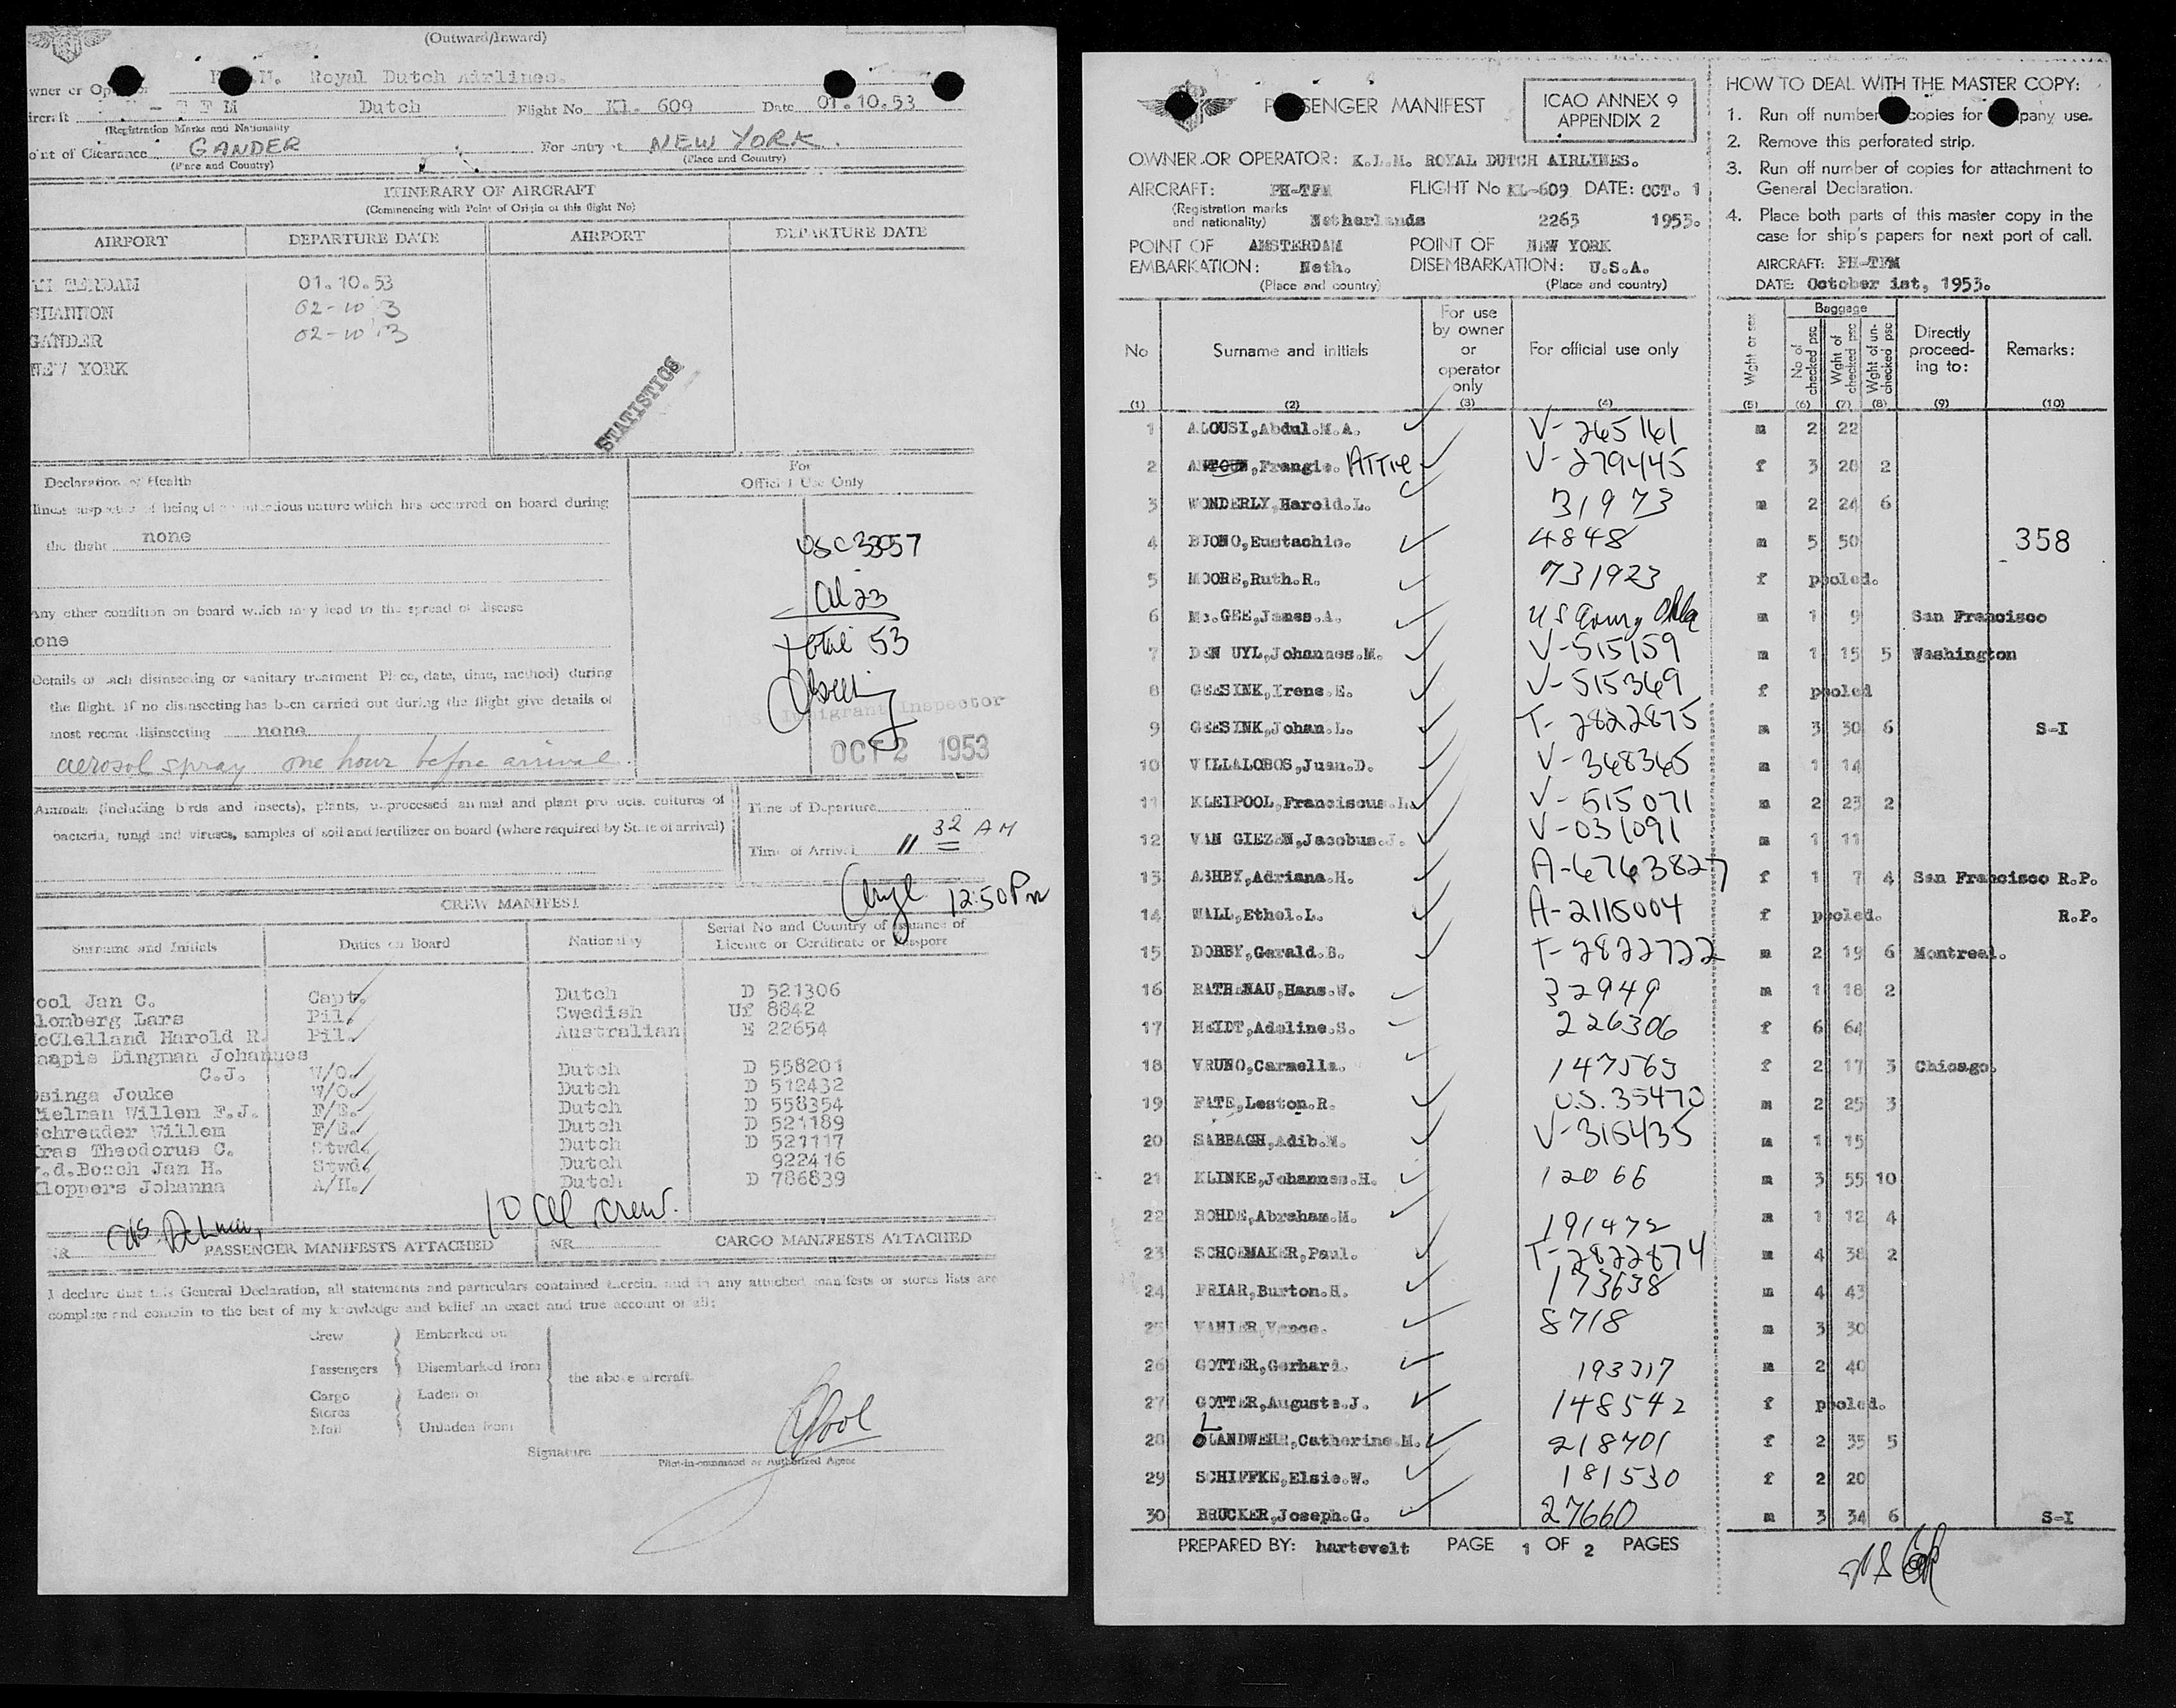 (Outward/Inward)
Royal Dutch Airlines.
Dutch Flight No. Kl. 609 Date 01.10.53
(Registration Marks and Nationality
GANDER For entry at NEW YORK.
(Place and Country) (Place and Country)
ITINERARY OF AIRCRAFT
(Commencing with Point of Origin of this flight No)
AIRPORT DEPARTURE DATE AIRPORT DEPARTURE DATE
01.10.53
SHANNON
GANDER
NEW YORK
STATISTICS
Declaration of Health
For
Official Use Only
the flight none
Any other condition on board which may lead to the spread of disease
Details of each disinsecting or sanitary treatment Place, date, time, method) during
the flight. If no disinsecting has been carried out during the flight give details of
most recent disinsecting none
aerosol spray one hour before arrival.
USC 30
al 23
total 53
Immigrant Inspector
OCT 2 1953
Animals (including birds and insects), plants, unprocessed animal and plant products, cultures of
bacteria, fungi and viruses, samples of soil and fertilizer on board (where required by State of arrival)
Time of Departure
Time of Arrival 11 32 AM
12:50 Pm
CREW MANIFEST
Surname and Initials Duties on Board Nationality Serial No and Country of Issuance of
Licence or Certificate or Passport
ool Jan C. Capt. Dutch D 521306
lomberg Lars Pil. Swedish Uf 8842
cClelland Harold R. Pil. Australian E 22654
Dingman Johannes
C.J. W/O. Dutch D 558201
singa Jouke W/O. Dutch D 512432
ielman Willem F.J. F/E. Dutch D 558354
chreuder Willem F/E. Dutch D 521189
ras Theodorus C. Stwd. Dutch D 521117
.d.Bosch Jan H. Stwd. Dutch 922416
loppers Johanna A/H. Dutch D 786839
10 al crew.
NR PASSENGER MANIFESTS ATTACHED NR CARGO MANIFESTS ATTACHED
I declare that this General Declaration, all statements and particulars contained therein, and in any attached manifests or stores lists are
complete and contain to the best of my knowledge and belief an exact and true account of all:
Crew Embarked on
Passengers Disembarked from
the above aircraft.
Cargo Laden on
Stores
Mail Unladen from
Signature
Pilot-in-command or Authorized Agent
SENGER MANIFEST
ICAO ANNEX 9
APPENDIX 2
OWNER OR OPERATOR: K.L.M. ROYAL DUTCH AIRLINES.
AIRCRAFT: PH-TFM FLIGHT No KL-609 DATE: OCT. 1
(Registration marks
and nationality) Netherlands 2263 1953.
POINT OF AMSTERDAM POINT OF NEW YORK
EMBARKATION: Neth. DISEMBARKATION: U.S.A.
(Place and country) (Place and country)
HOW TO DEAL WITH THE MASTER COPY:
1. Run off number copies for pany use.
2. Remove this perforated strip.
3. Run off number of copies for attachment to
General Declaration.
4. Place both parts of this master copy in the
case for ship's papers for next port of call.
AIRCRAFT: PH-TFM
DATE: October 1st, 1953.
No Surname and initials For use by owner or operator only For official use only Wght or sex Baggage No of checked psc Wght of checked psc Wght of un-checked psc Directly proceed-ing to: Remarks:
(1) (2) (3) (4) (5) (6) (7) (8) (9) (10)
1 ALOUSI,Abdul.M.A. V-265161 m 2 22
2 Frangie. Attie V-279445 f 3 28 2
3 WONDERLY,Harold.L. 31973 m 2 24 6
4 BUONO,Eustachio. 4848 m 5 50 358
5 MOORE,Ruth.R. 731923 f pooled.
6 Mc.GEE,James.A. US Army m 1 9 San Francisco
7 DEN UYL,Johannes.M. V-515159 m 1 15 5 Washington
8 GEESINK,Irene.E. V-515369 f pooled
9 GEESINK,Johan.L. T-2822875 m 3 30 6 S-I
10 VILLALOBOS,Juan.D. V-368365 m 1 14
11 KLEIPOOL,Franciscus.L. V-515071 m 2 23 2
12 VAN GIEZEN,Jacobus.J. V-031091 m 1 11
13 ASHBY,Adriana.H. A-6763827 f 1 7 4 San Francisco R.P.
14 WALL,Ethel.L. A-2115004 f pooled. R.P.
15 DOBBY,Gerald.B. T-2822722 m 2 19 6 Montreal.
16 RATHENAU,Hans.W. 32949 m 1 18 2
17 HEIDT,Adeline.S. 226306 f 6 64
18 VRUNO,Carmella. 147563 f 2 17 3 Chicago.
19 PATE,Leston.R. U.S. 35470 m 2 25 3
20 SABBAGH,Adib.M. V-315435 m 1 15
21 KLINKE,Johannes.H. 12066 m 3 55 10
22 ROHDE,Abraham.M. 191472 m 1 12 4
23 SCHOEMAKER,Paul. T-2822874 m 4 38 2
24 FRIAR,Burton.H. 173638 m 4 43
25 VANIER,Vance. 8718 m 3 30
26 GOTTER,Gerhard. 193717 m 2 40
27 GOTTER,Auguste.J. 148542 f pooled.
28 LANDWEHR,Catherine.M. 218701 f 2 35 5
29 SCHIFFKE,Elsie.W. 181530 f 2 20
30 BRUCKER,Joseph.G. 27660 m 3 34 6 S-I
PREPARED BY: hartevelt PAGE 1 OF 2 PAGES